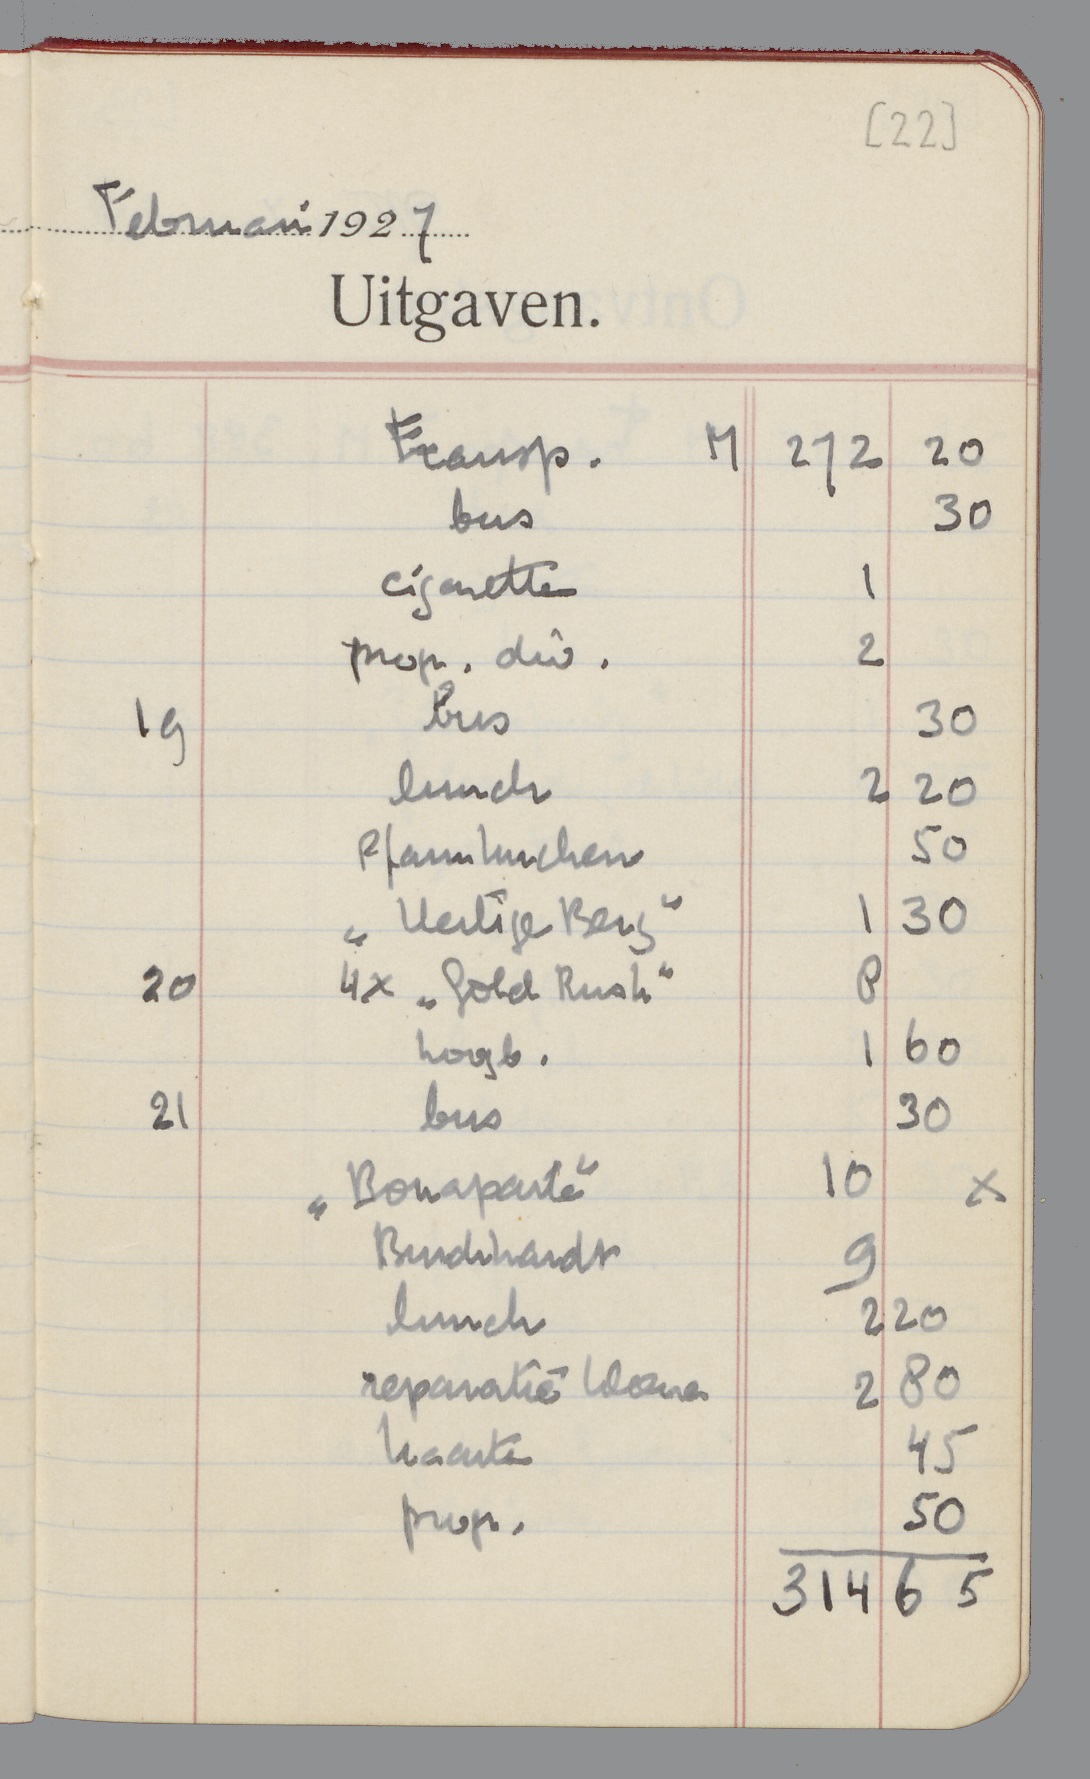 [22]
Februari 1927
Uitgaven.
Transp. M 272 20
bus 30
cigaretten 1
prop. div. 2
19 bus 30
lunch 2 20
Pfannkuchen 50
„Heilige Berg“ 1 30
20 4x „Gold Rush“ 8
hoogb. 1 60
21 bus 30
„Bonaparte“ 10 x
Burckhardt 9
lunch 2 20
reparatie 2 80
kaarten 45
prop. 50
314 65